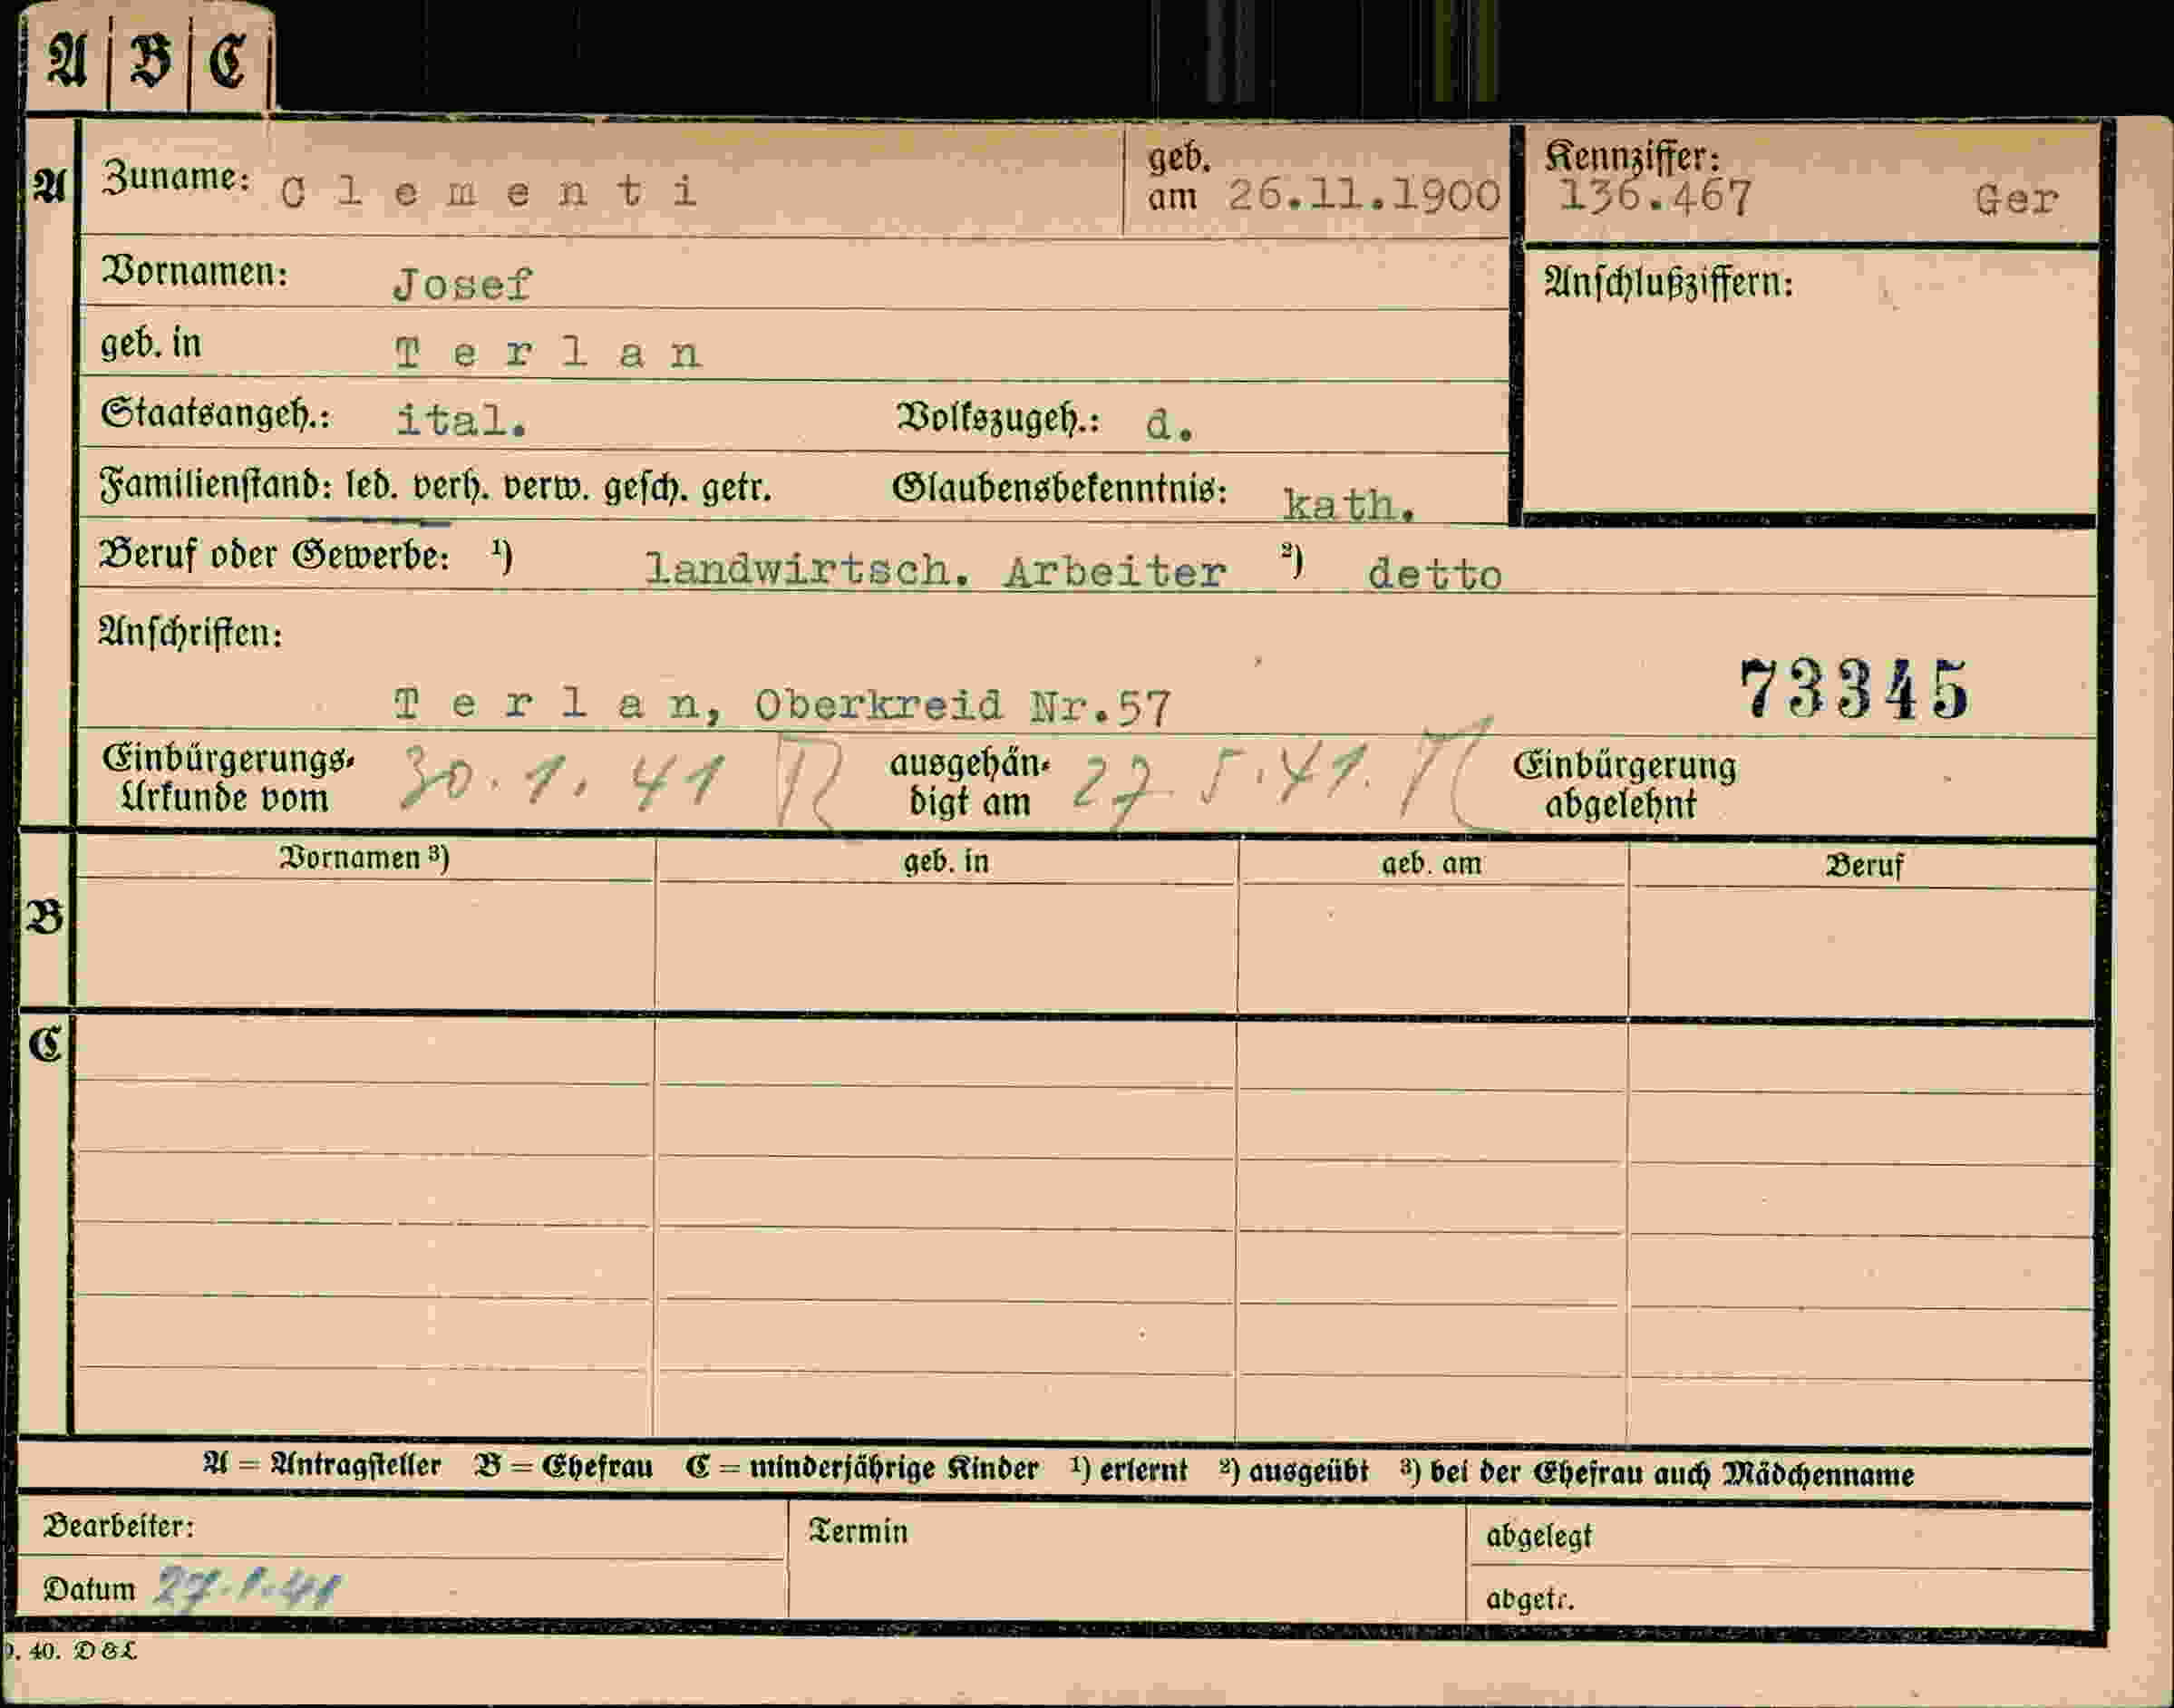 A B C
A Zuname: C l e m e n t i geb. am 26.11.1900 Kennziffer: 136.467 Ger
Vornamen: Josef Anschlußziffern:
geb. in T e r l a n
Staatsangeh.: ital. Volkszugeh.: d.
Familienstand: led. verh. verw. gesch. getr. Glaubensbekenntnis: kath.
Beruf oder Gewerbe: ¹) landwirtsch. Arbeiter ²) detto
Anschriften:
73345
T e r l a n, Oberkreid Nr.57
Einbürgerungs- Urkunde vom 30.1.41 ausgehän- digt am 27.5.41. Einbürgerung abgelehnt
Vornamen ³) geb. in geb. am Beruf
B
C
A = Antragsteller B = Ehefrau C = minderjährige Kinder ¹) erlernt ²) ausgeübt ³) bei der Ehefrau auch Mädchenname
Bearbeiter: Termin abgelegt
Datum 27.1.41 abgetr.
40. D & L